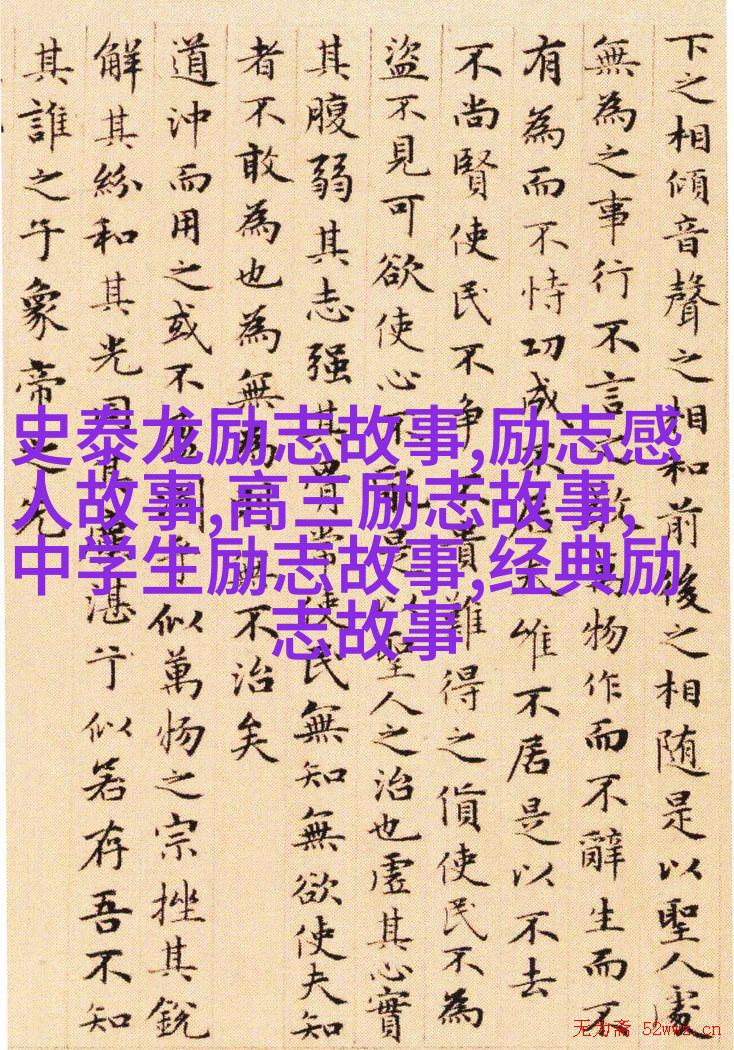 下之相傾音聲之相和前後之相随是以聖人處
無為之事行不言之教萬物作而不辭生而不
有為而不恃功成不居夫唯不居是以不去
不尚賢使民不争不貴難得之貨使民不為
盗不見可欲使心不亂是以聖人之治也虚其心實
其腹弱其志强其骨常使民無知無欲使夫知
者不敢為也為無為則無不治矣
道沖而用之或不盈淵兮似萬物之宗挫其銳
解其紛和其光同其塵湛兮似若存吾不知
其誰之子象帝之先
史泰龙励志故事,励志感
人故事,高三励志故事,
中学生励志故事,经典励
志故事
无为斋 52wwz.cn